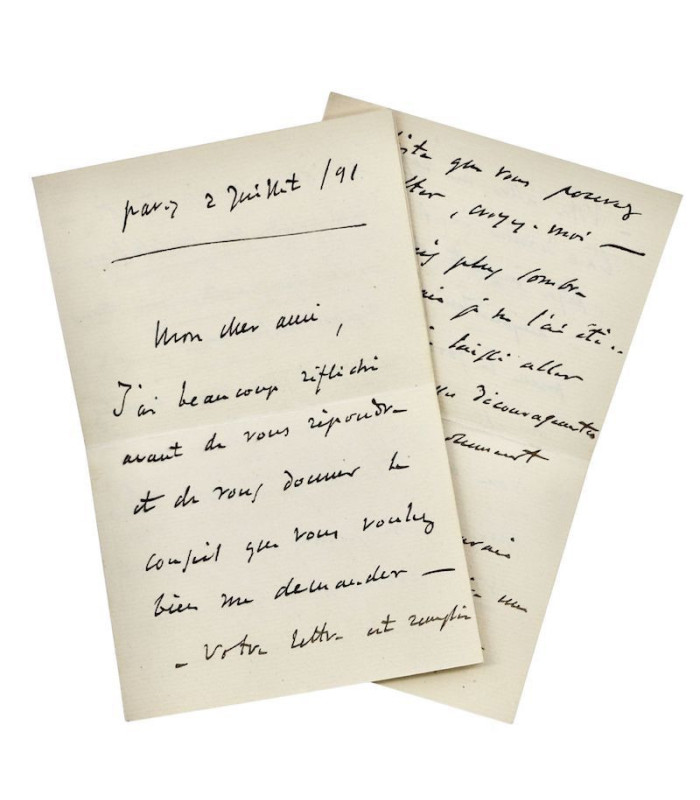 paris 2 Juillet /91
Mon cher ami,
J'ai beaucoup réfléchi
avant de vous répondre
et de vous donner le
conseil que vous voulez
bien me demander —
- Votre lettre est remplie
que vous pouvez
, croyez-moi —
plus sombre
je ne l'ai été..
laissé aller
décourageantes